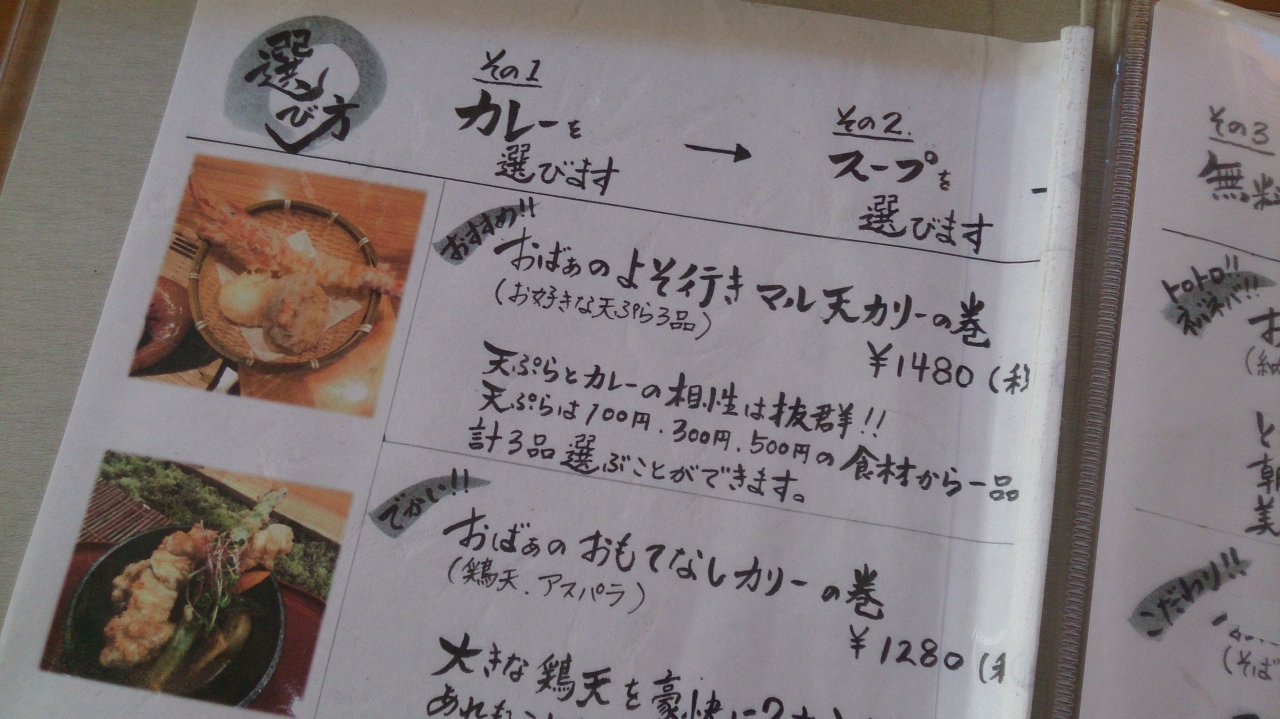 選び方
その1
カレーを
選びます
→
その2.
スープを
選びます
おすすめ!!
おばぁのよそ行きマル天カリーの巻
(お好きな天ぷら3品)
¥1480(税
天ぷらとカレーの相性は抜群!!
天ぷらは100円.300円.500円の食材から一品
計3品選ぶことができます。
でかい!!
おばぁのおもてなしカリーの巻
(鶏天.アスパラ)
¥1280(税
大きな鶏天を豪快に
その3
無料
トロトロ!!
ネバネバ!!
お
(納
と
朝
美
こだわり!!
(そば